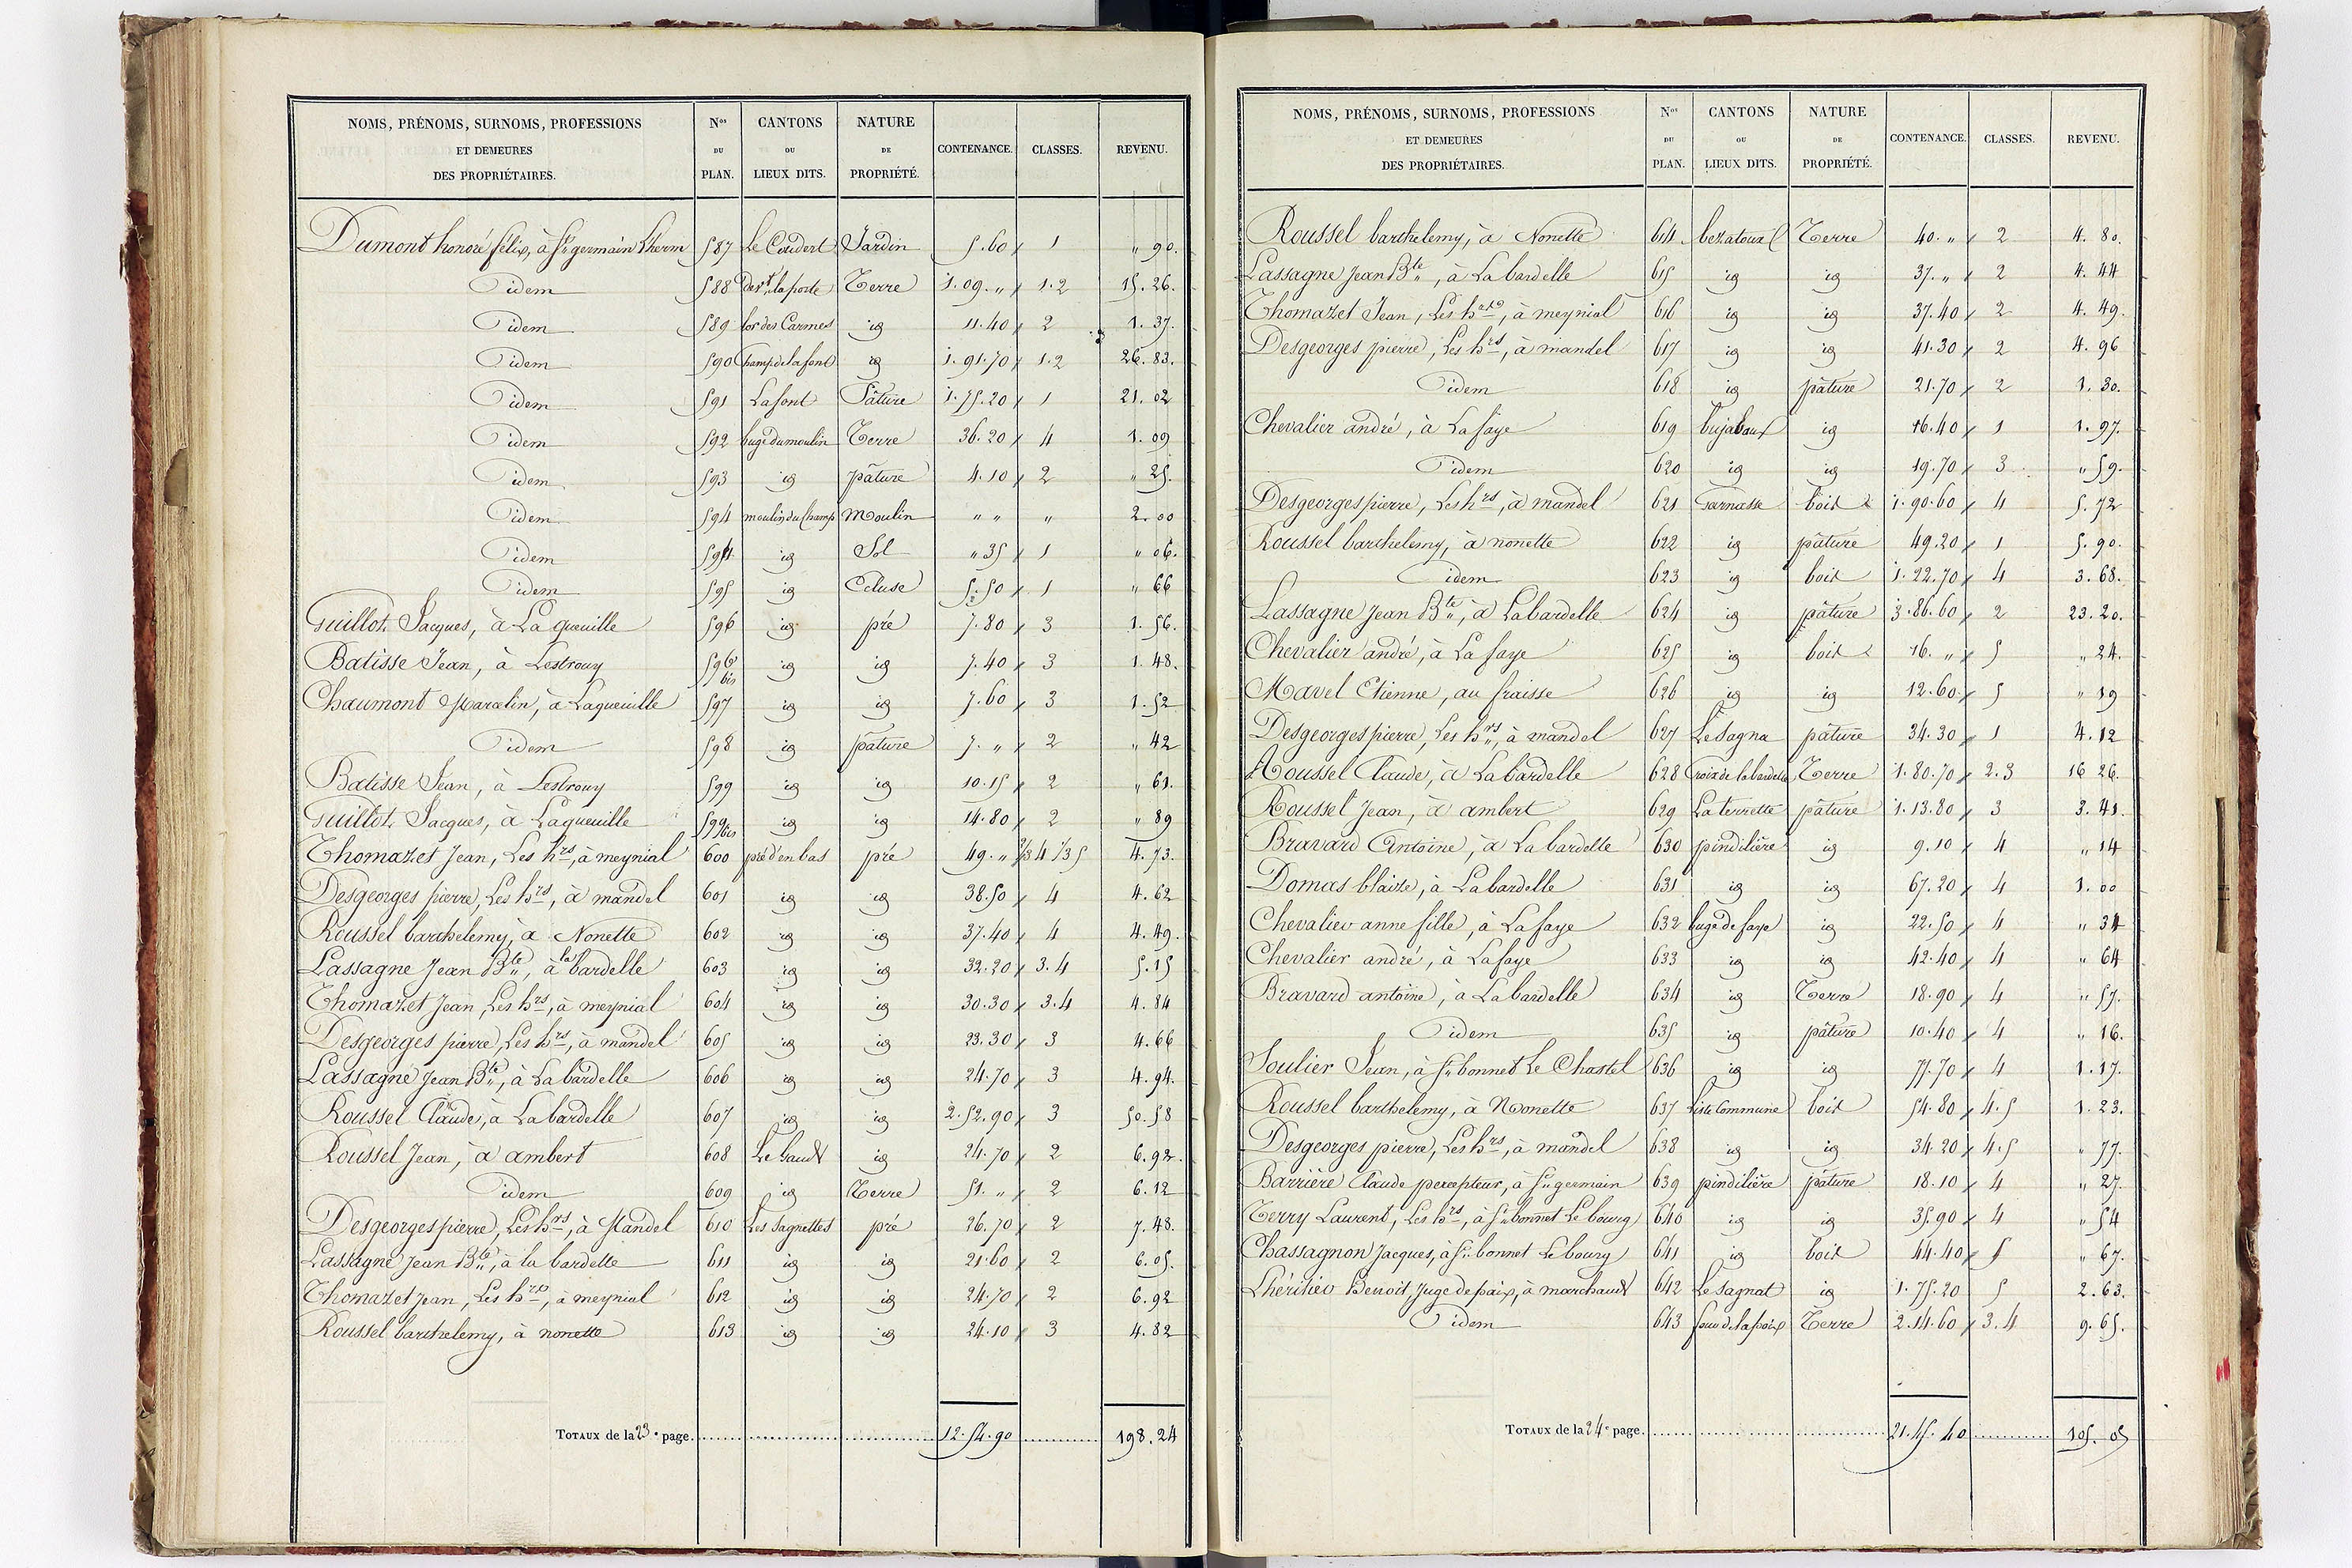 NOMS, PRÉNOMS, SURNOMS, PROFESSIONS ET DEMEURES DES PROPRIÉTAIRES. Nos DU PLAN. CANTONS OU LIEUX DITS. NATURE DE PROPRIÉTÉ. CONTENANCE. CLASSES. REVENU.
Dumont honoré félix, à St germain Lherm 587 Le Coudert Jardin 5.60 1 " 90.
idem 588 Devt la porte Terre 1.09. " 1.2 15.26.
idem 589 lor des Carmes id 11.40 2 1.37.
idem 590 Champ de la font id 1.91.70 1.2 26.83.
idem 591 Lafont Pâture 1.75.20 1 21.02
idem 592 buge du moulin Terre 36.20 4 1.09
idem 593 id pâture 4.10 2 " 25.
idem 594 moulin du Champ Moulin " " " 2.00
idem 594 id Sol " 35 1 " 06.
idem 595 id Ecluse 5.50 1 " 66
Guillot Jacques, à La queuille 596 id pré 7.80 3 1.56.
Batisse Jean, à Lestrouy 596 bis id id 7.40 3 1.48.
Chaumont Marcelin, à Laqueuille 597 id id 7.60 3 1.52
idem 598 id pâture 7. " 2 " 42
Batisse Jean, à Lestrouy 599 id id 10.15 2 " 61.
Guillot Jacques, à Laqueuille 599 bis id id 14.80 2 " 89
Thomazet Jean, Les hrs, à meynial 600 pré d'en bas pré 49. " 2/3 4 1/3 5 4.73.
Desgeorges pierre, Les hrs, à mandel 601 id id 38.50 4 4.62
Roussel barthelemy, à Nonette 602 id id 37.40 4 4.49.
Lassagne Jean Bte, à la bardelle 603 id id 32.20 3.4 5.15
Thomazet Jean, Les hrs, à meynial 604 id id 30.30 3.4 4.84
Desgeorges pierre, Les hrs, à mandel 605 id id 23.30 3 4.66
Lassagne Jean Bte, à La bardelle 606 id id 24.70 3 4.94.
Roussel Claude, à La bardelle 607 id id 2.52.90 3 50.58
Roussel Jean, à ambert 608 id 24.70 2 6.92.
idem 609 id Terre 51. " 2 6.12
Desgeorges pierre, Les hrs, à Mandel 610 Les Sagnettes pré 26.70 2 7.48.
Lassagne Jean Bte, à la bardelle 611 id id 21.60 2 6.05.
Thomazet Jean, Les hrs, à meynial 612 id id 24.70 2 6.92
Roussel barthelemy, à nonette 613 id id 24.10 3 4.82
TOTAUX de la 23e page. 12.54.90 198.24
NOMS, PRÉNOMS, SURNOMS, PROFESSIONS ET DEMEURES DES PROPRIÉTAIRES. Nos DU PLAN. CANTONS OU LIEUX DITS. NATURE DE PROPRIÉTÉ. CONTENANCE. CLASSES. REVENU.
Roussel barthelemy, à Nonette 614 bezatoux Terre 40. " 2 4.80.
Lassagne Jean Bte, à La bardelle 615 id id 37. " 2 4.44
Thomazet Jean, Les hrs, à meynial 616 id id 37.40 2 4.49.
Desgeorges pierre, Les hrs, à mandel 617 id id 41.30 2 4.96
idem 618 id pâture 21.70 2 1.30.
Chevalier andré, à La faye 619 bujabaux id 16.40 1 1.97.
idem 620 id id 19.70 3 " 59.
Desgeorges pierre, Les hrs, à mandel 621 Garnasse bois 1.90.60 4 5.72
Roussel barthelemy, à nonette 622 id pâture 49.20 1 5.90.
idem 623 id bois 1.22.70 4 3.68.
Lassagne Jean Bte, à La bardelle 624 id pâture 3.86.60 2 23.20.
Chevalier andré, à La faye 625 id bois 16. " 5 " 24.
Mavel Etienne, au fraisse 626 id id 12.60 5 " 19
Desgeorges pierre, Les hrs, à mandel 627 Le Sagna pâture 34.30 1 4.12
Roussel Claude, à La bardelle 628 Croix de labardelle Terre 1.80.70 2.3 16 26.
Roussel Jean, à ambert 629 La terrette pâture 1.13.80 3 3.41.
Bravard Antoine, à La bardelle 630 pindilière id 9.10 4 " 14
Domas blaize, à La bardelle 631 id id 67.20 4 1.00
Chevalier anne fille, à La faye 632 buge de faye id 22.50 4 " 34
Chevalier andré, à Lafaye 633 id id 42.40 4 " 64
Bravard antoine, à La bardelle 634 id Terre 18.90 4 " 57.
idem 635 id pâture 10.40 4 " 16.
Soulier Jean, à St bonnet Le Chastel 636 id id 77.70 4 1.17.
Roussel barthelemy, à Nonette 637 Liste Commune bois 54.80 4.5 1.23.
Desgeorges pierre, Les hrs, à mandel 638 id id 34.20 4.5 " 77.
Barrière Claude percepteur, à St germain 639 pindilière pâture 18.10 4 " 27.
Terry Laurent, Les hrs, à St bonnet Le bourg 640 id id 35.90 4 " 54
Chassagnon Jacques, à St bonnet Le bourg 641 id bois 44.40 5 " 67.
Lhéritier Benoit, Juge de paix, à marchaud 642 Le Sagnat id 1.75.20 5 2.63.
idem 643 Terre 2.14.60 3.4 9.65.
TOTAUX de la 24e page. 21.45.40 105.05